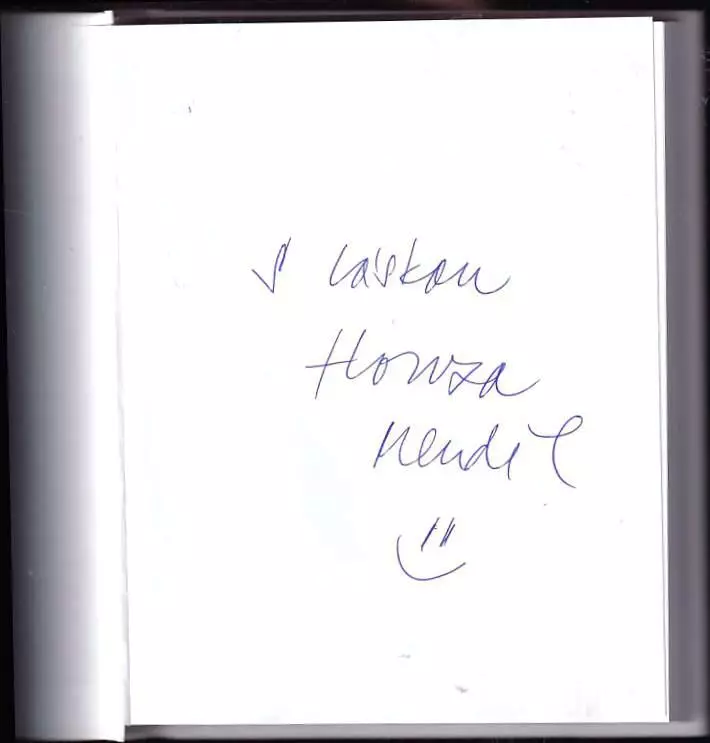 S láskou
Honza
Nendil